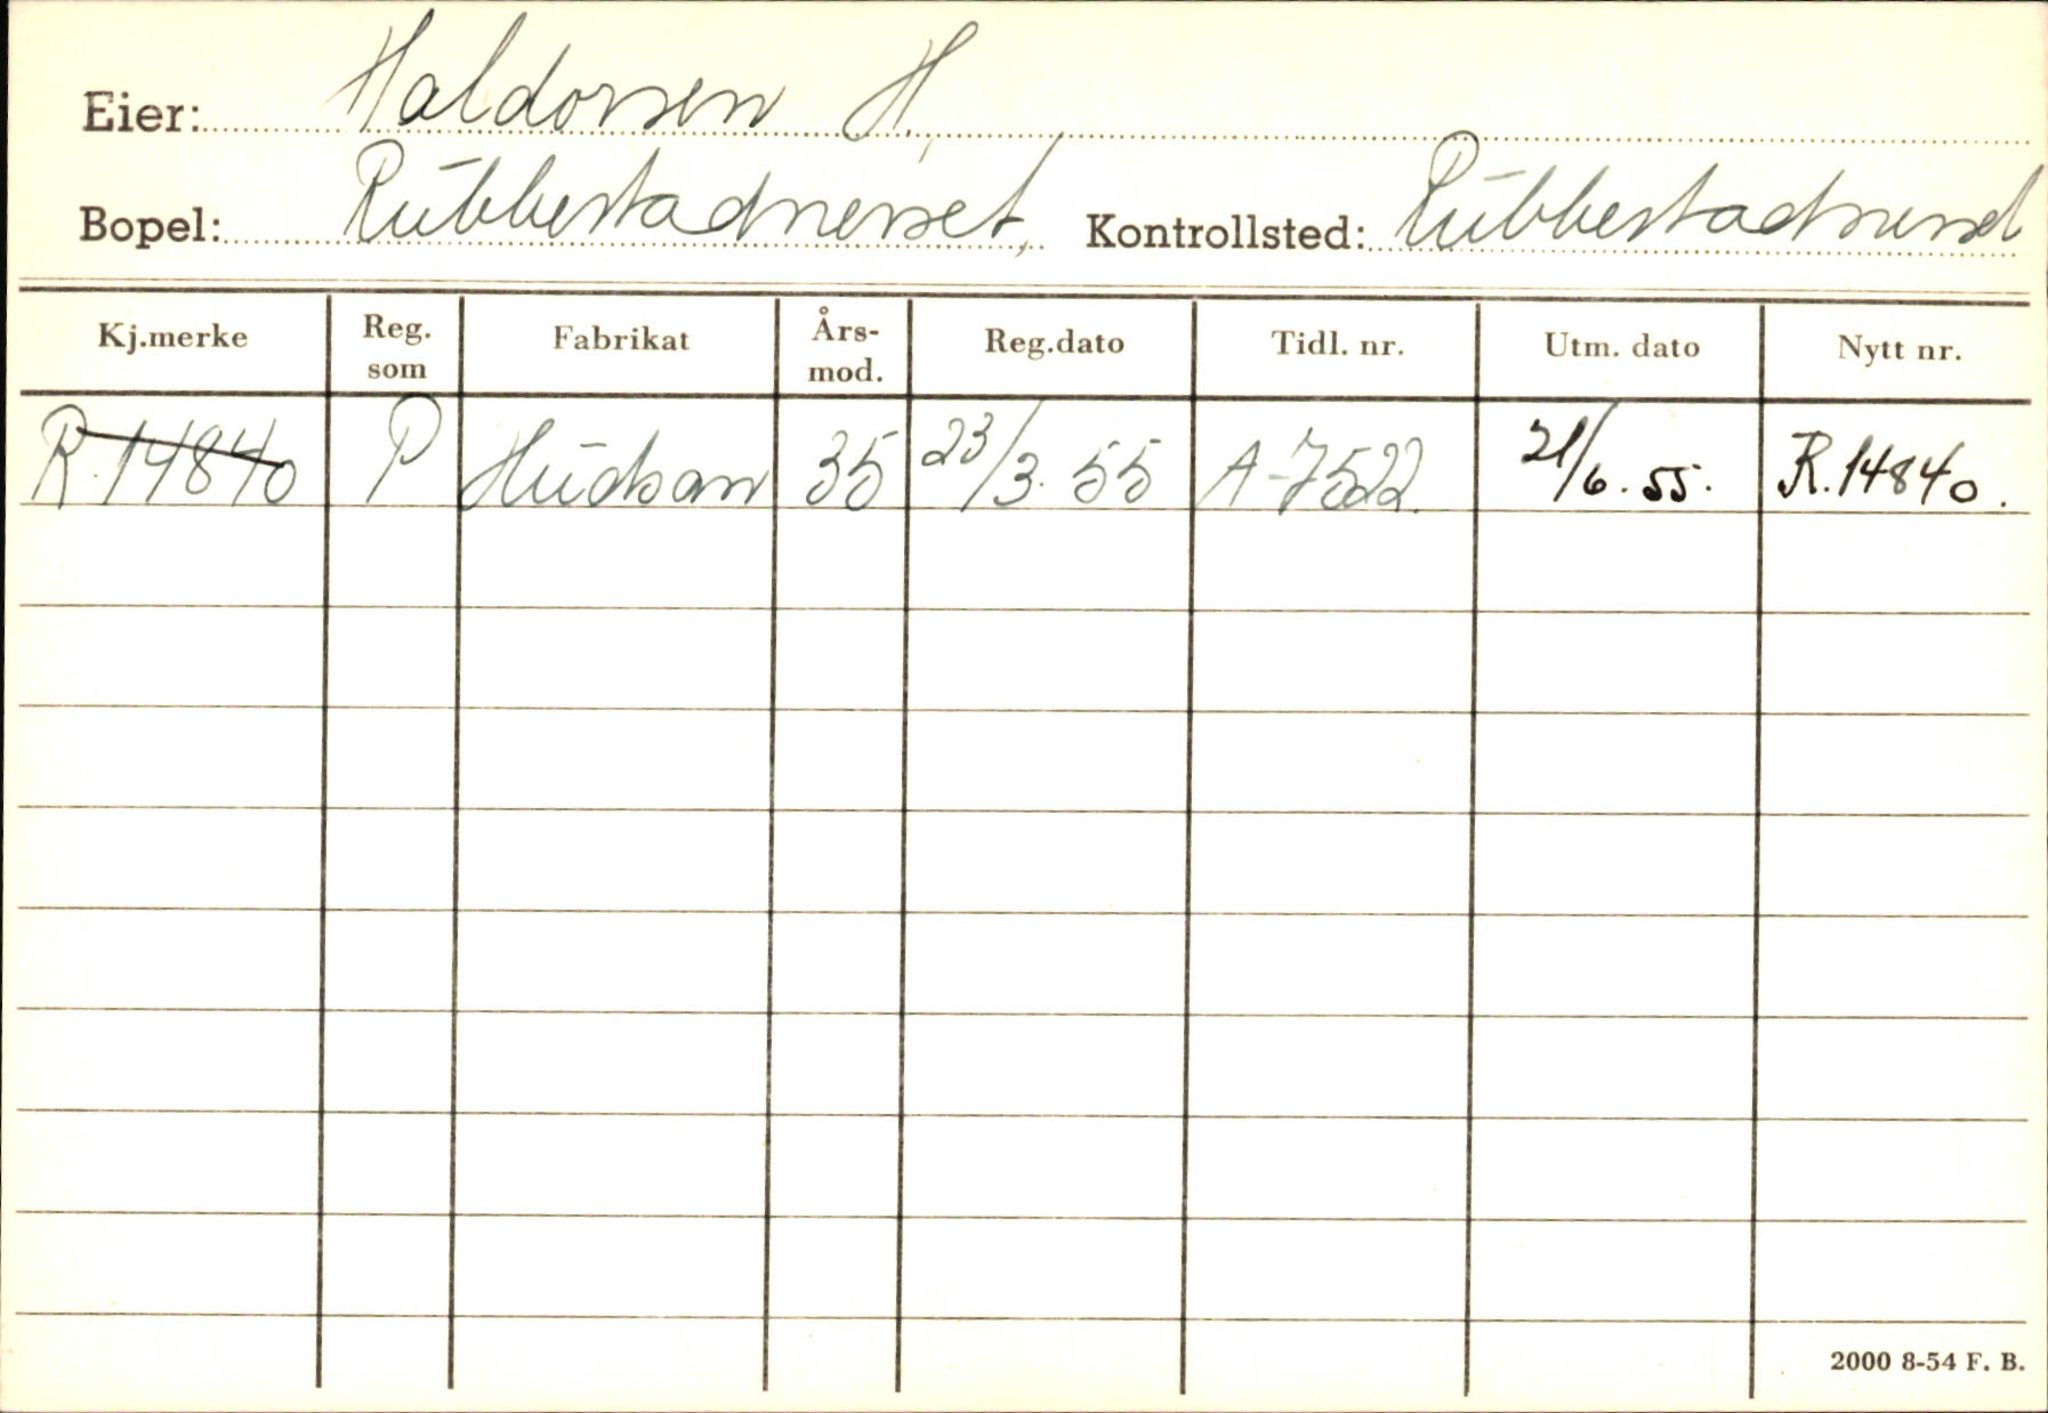 Eier: Haldorsen H.,
Bopel: Rubbestadnesset, Kontrollsted: Rubbestadnesset
Kj.merke Reg. som Fabrikat Års-mod. Reg.dato Tidl. nr. Utm. dato Nytt nr.
R.14840 P Hudson 35 23/3.55 A-7522. 21/6.55. R.14840.
2000 8-54 F. B.